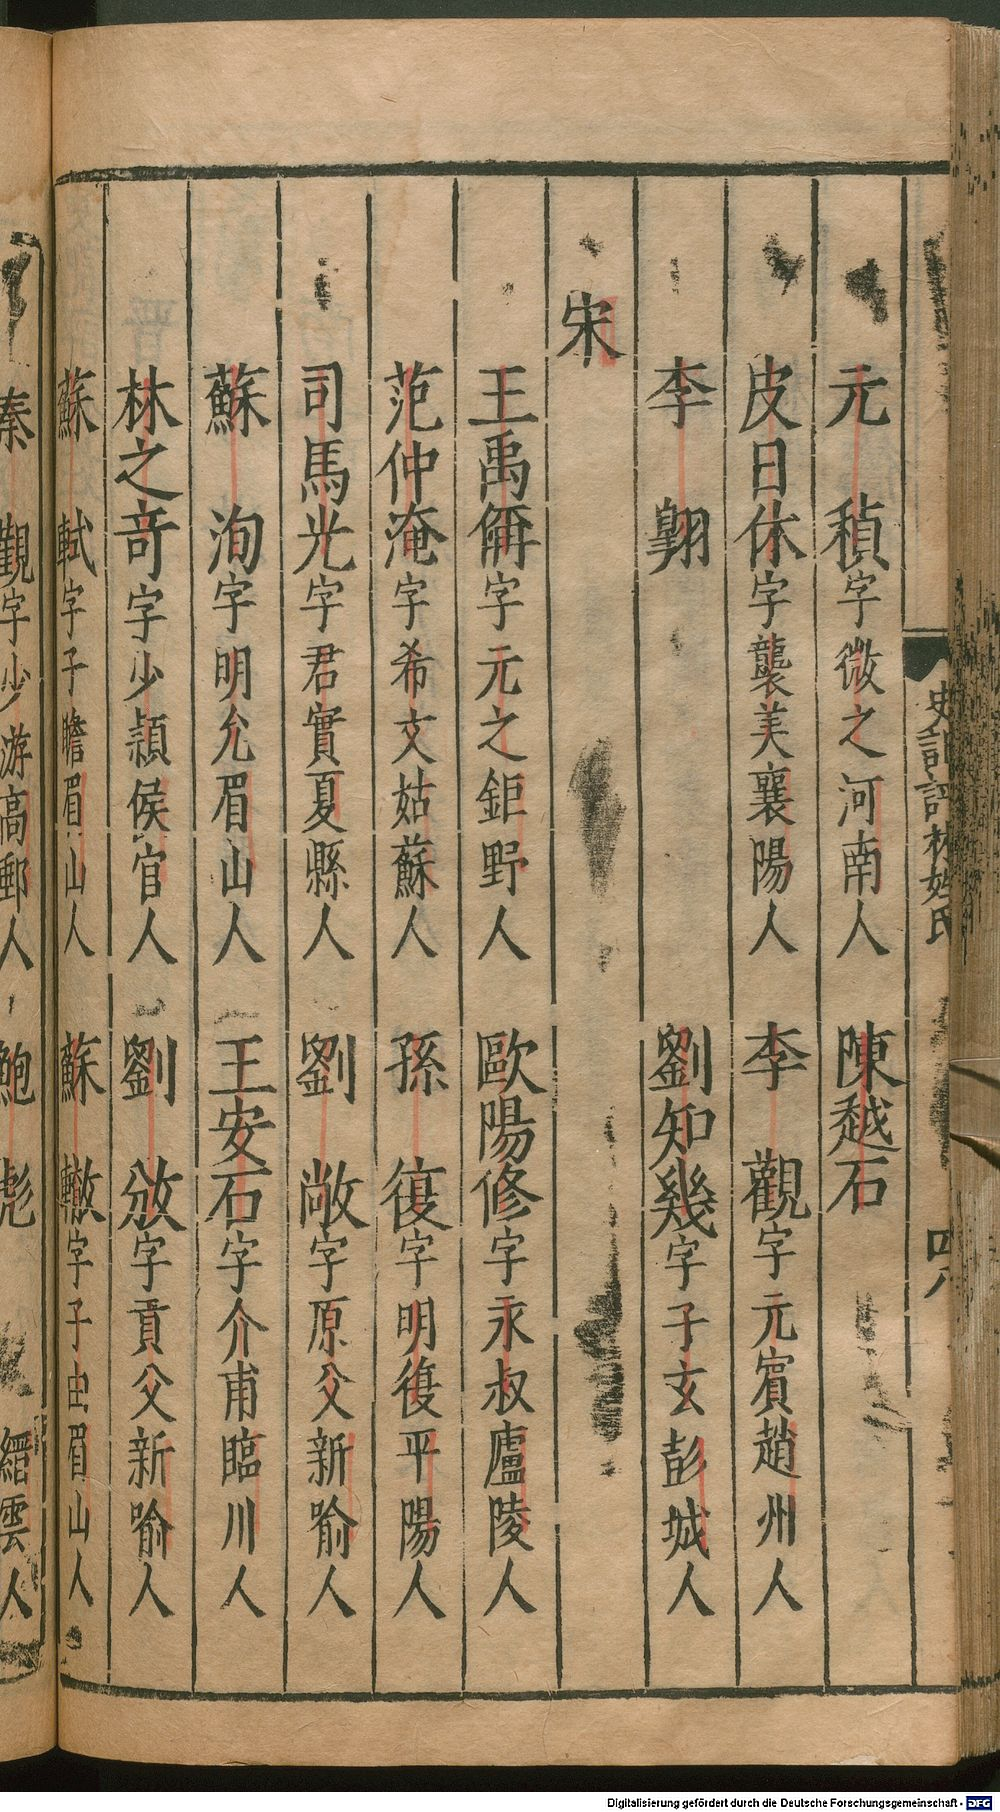 史記評林姓氏 四
元稹字微之河南人 陳越石
皮日休字襲美襄陽人 李觀字元賓趙州人
李翶 劉知幾字子玄彭城人
宋
王禹偁字元之鉅野人 歐陽修字永叔廬陵人
范仲淹字希文姑蘇人 孫復字明復平陽人
司馬光字君實夏縣人 劉敞字原父新喻人
蘇洵字明允眉山人 王安石字介甫臨川人
林之奇字少穎侯官人 劉攽字貢父新喻人
蘇軾字子瞻眉山人 蘇轍字子由眉山人
秦觀字少游高郵人 鮑彪 縉雲人
Digitalisierung gefördert durch die Deutsche Forschungsgemeinschaft - DFG